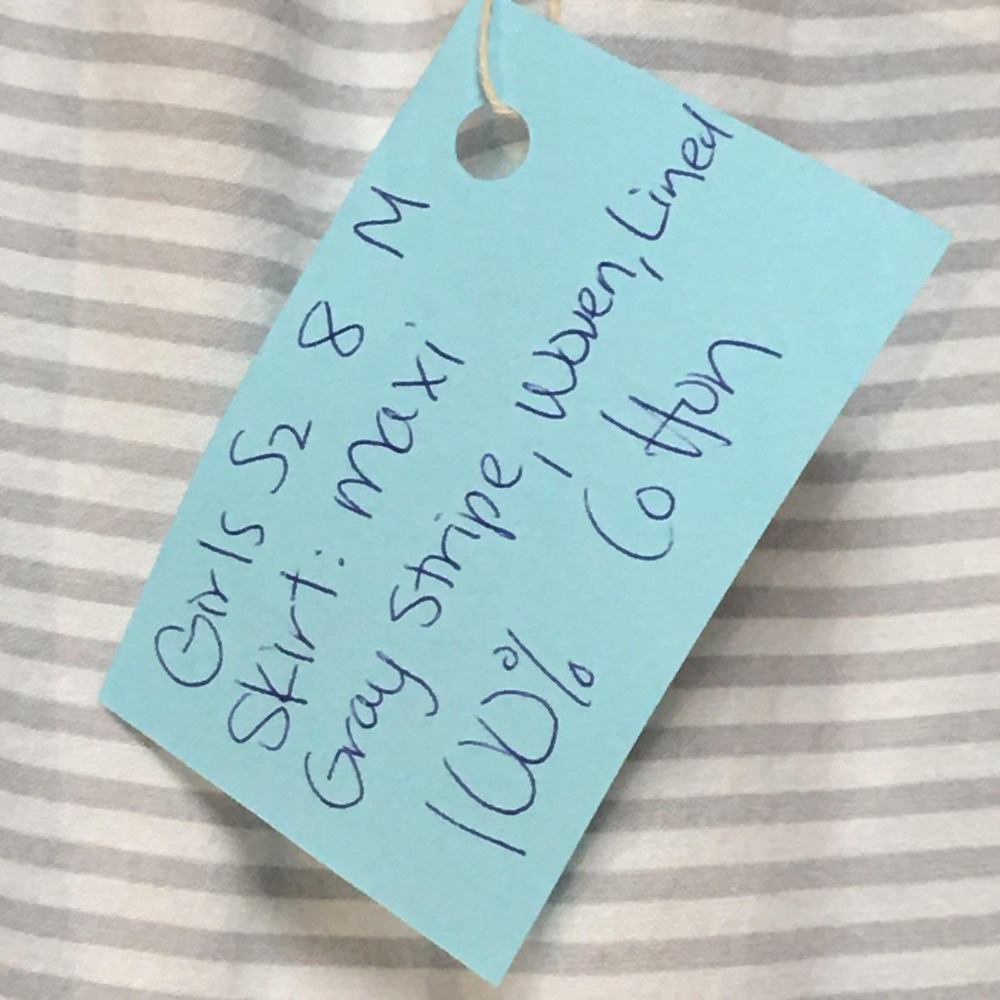 Girls Sz 8 M
Skirt: maxi
Gray Stripe, Woven, Lined
100% Cotton